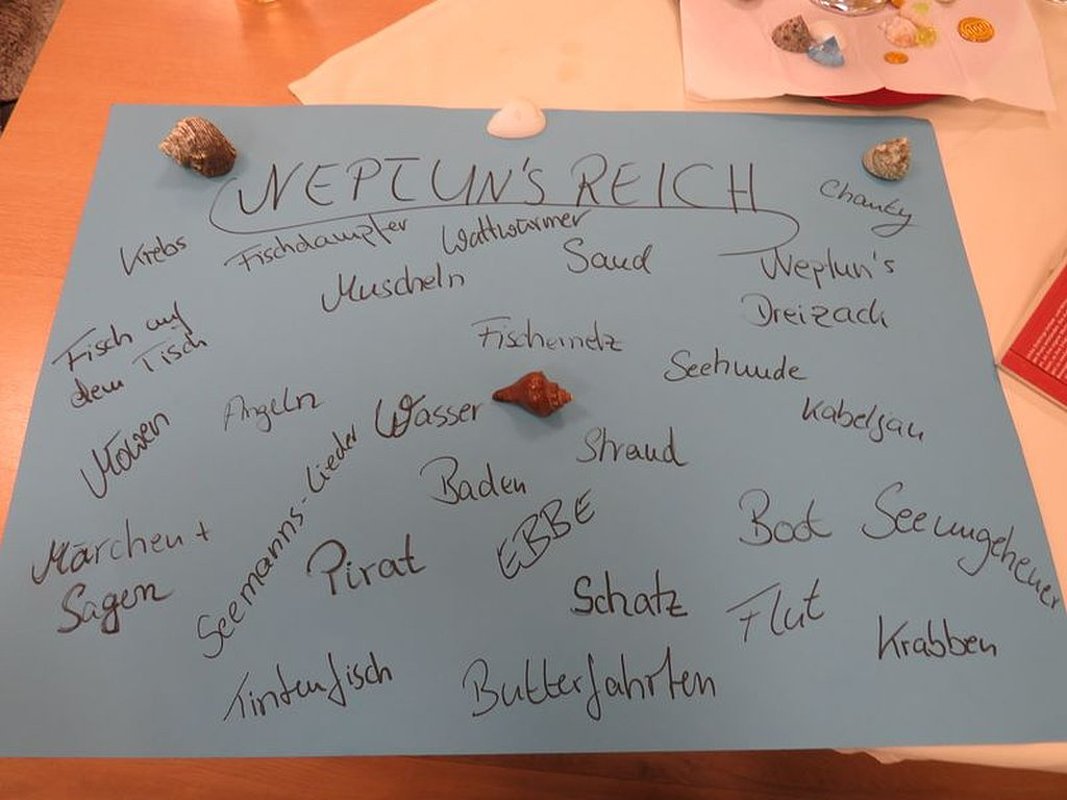 NEPTUN'S REICH
Chanty
Krebs
Fischdampfer
Wattwürmer
Sand
Neptun's
Dreizack
Muscheln
Fisch auf
dem Tisch
Fischernetz
Seehunde
Angeln
Wasser
Kabeljau
Möwen
Seemanns-Lieder
Strand
Baden
EBBE
Boot
Seeungeheuer
Märchen +
Sagen
Pirat
Schatz
Flut
Krabben
Tintenfisch
Butterfahrten